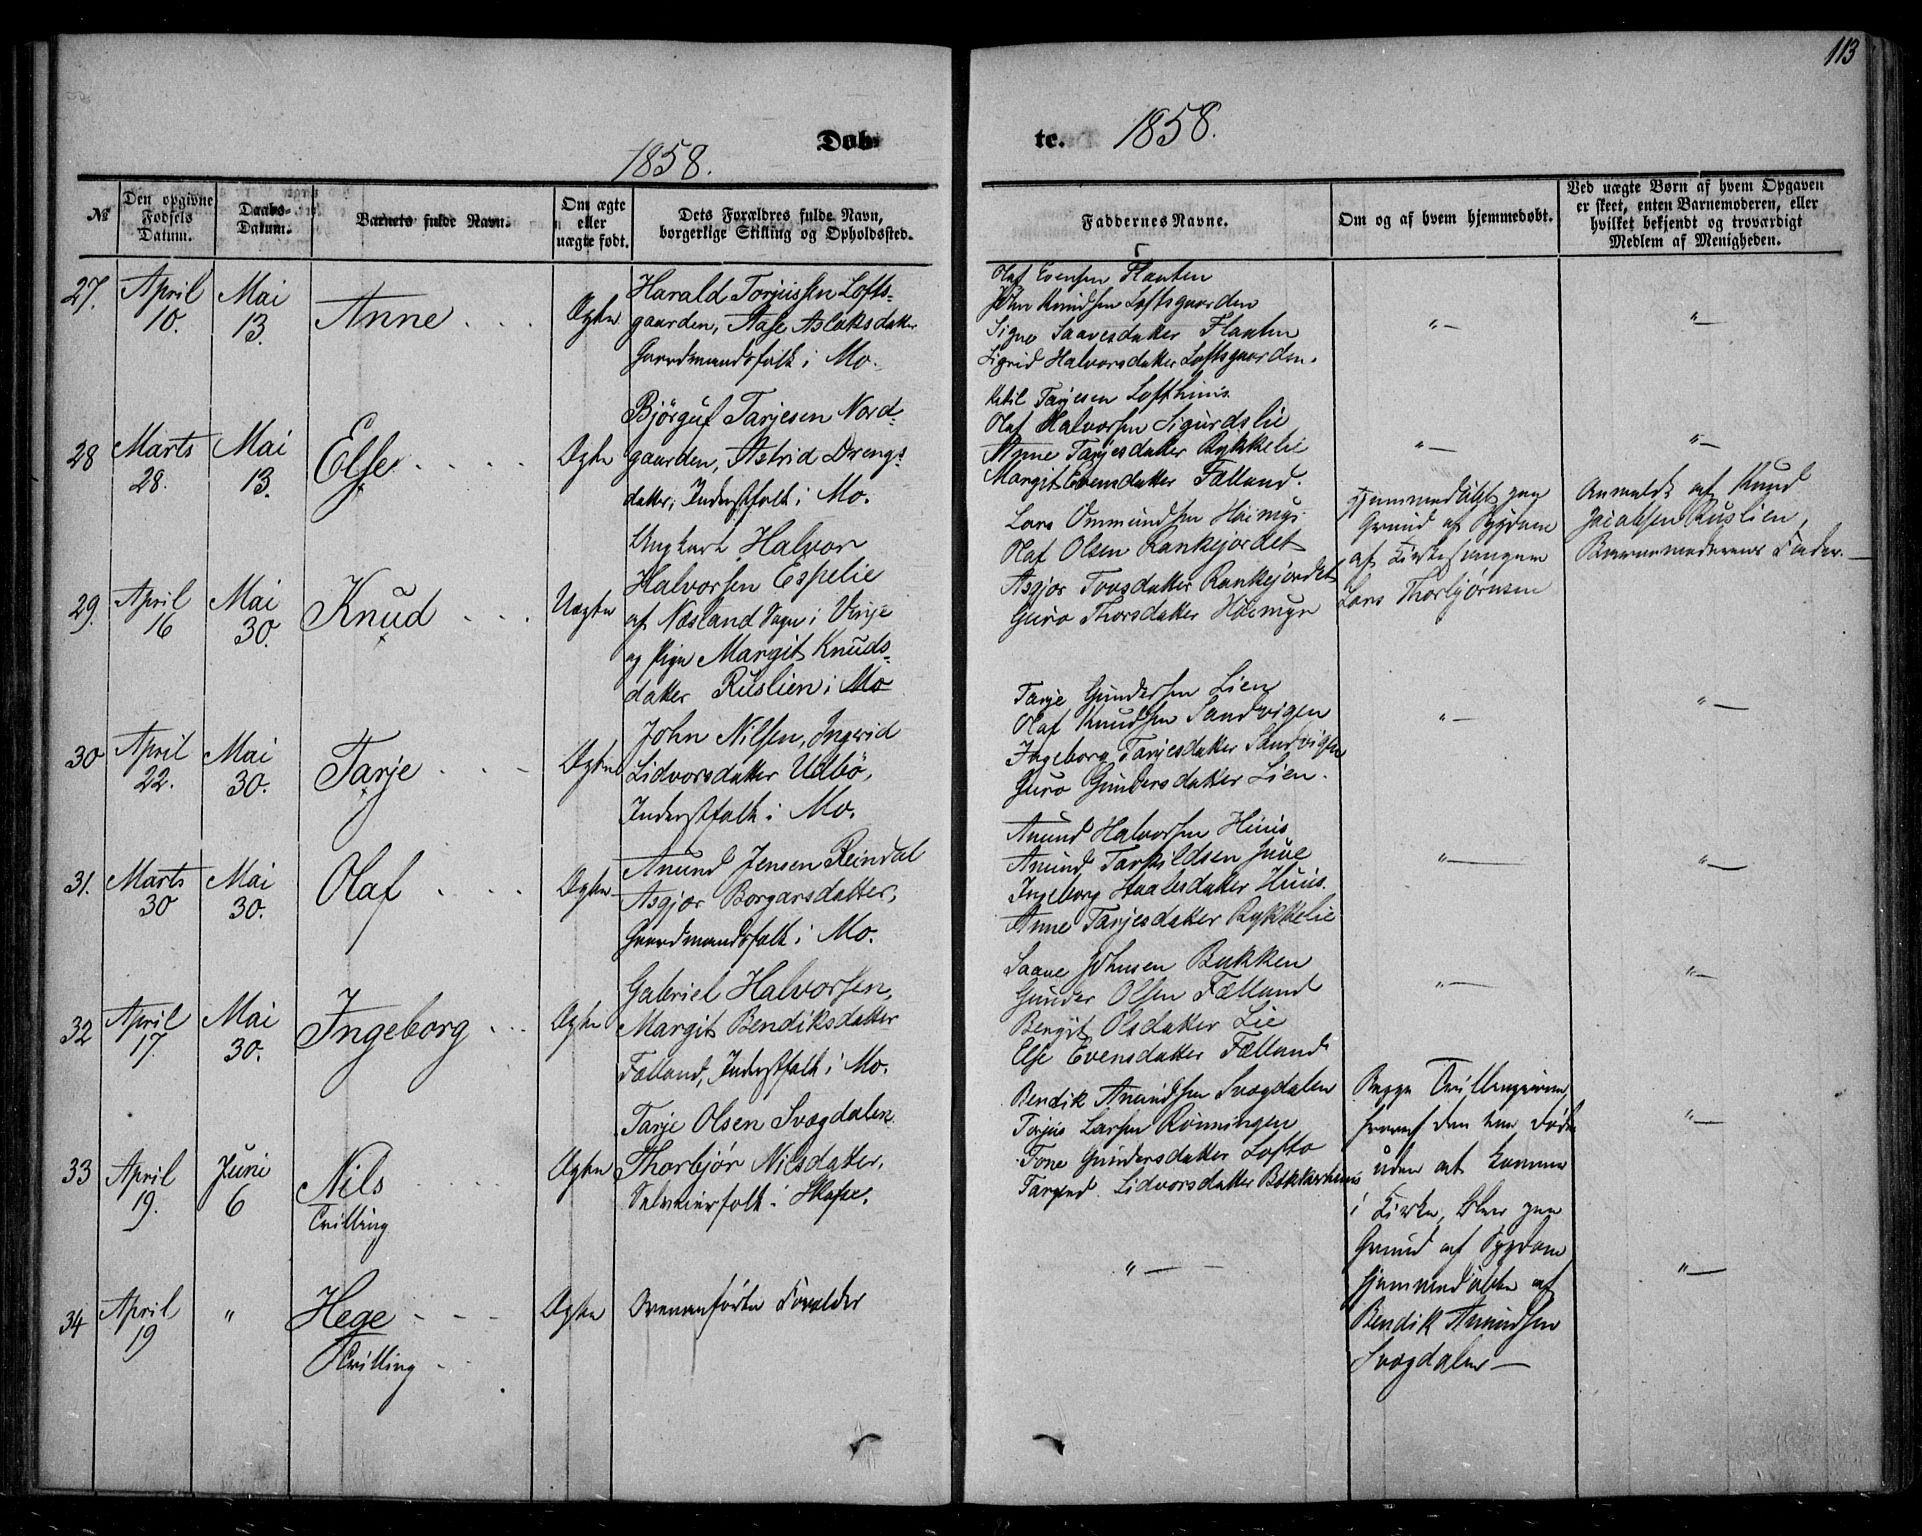 113
Døb-
te.
1858.
1858.
№
Den opgivne Fødsels Datum.
Daabs-Datum.
Barnets fulde Navn.
Om ægte eller uægte født.
Dets Forældres fulde Navn, borgerlige Stilling og Opholdssted.
Faddernes Navne.
Om og af hvem hjemmedøbt.
Ved uægte Børn af hvem Opgaven er skeet, enten Barnemoderen, eller hvilket bekjendt og troværdigt Medlem af Menigheden.
27.
April 10.
Mai 13.
Anne
Ægte
Harald Torjussen Lofts-
gaarden, Aase Aslaksdatter
Gaardmandsfolk i Mo.
Olaf Evensen Flaaten
John Knudsen Loftsgaarden
Signe Saavesdatter Flaaten
Sigrid Halvorsdatter Loftsgaarden.
"—
"—
28
Marts 28.
Mai 13.
Else
Ægte
Bjørguf Tarjesen Nord-
gaarden, Astrid Drengs-
datter, Inderstfolk i Mo.
Ketil Tarjesen Lofthuus.
Olaf Halvorsen Sigurdslie
Anne Tarjesdatter Rykkelie
Margit Evensdatter Fælland.
"—
"—
29.
April 16
Mai 30.
Knud
Uægte
Ungkarl Halvor
Halvorsen Espelie
af Næsland Sogn i Vinje
og Pige Margit Knuds-
datter Ruslien i Mo
Lars Ommundsen Haimyr
Olaf Olsen Rankejordet
Asgjør Tovsdatter Rankejordet
Guro Thorsdatter Haimyr
Hjemmedøbt paa
Grund af Sygdom
af Kirkesangeren
Lars Thorbjørnsen
Anmeldt af Knud
Jacobsen Ruslien,
Barnemoderens Fader.—
30
April 22.
Mai 30.
Tarje
Ægte
John Nilsen, Ingrid
Lidvorsdatter Udbö,
Inderstfolk i Mo.
Tarje Gundersen Lien
Olaf Knudsen Sandvigen
Ingeborg Tarjesdatter Sandvigen
Guro Gundersdatter Lien.
"—
"—
31.
Marts 30
Mai 30.
Olaf
Ægte
Anund Jensen Reindal
Asgjør Borgarsdatter,
Gaardmandsfolk i Mo.
Anund Halvorsen Huus
Anund Tarkildsen Juve
Ingeborg Staalesdatter Huus.
Anne Tarjesdatter Rykkelie
"—
"—
32
April 17.
Mai 30.
Ingeborg
Ægte
Gabriel Halvorsen,
Margit Bendiksdatter
Fælland, Inderstfolk i Mo.
Saave Johnsen Bakken
Gunder Olsen Fælland
Bergit Olsdatter Lie
Else Evensdatter Fælland
"—
"—
33
April 19.
Juni 6
Nils
Tvilling
Ægte
Tarje Olsen Svægdalen
Thorbjør Nilsdatter,
Selveierfolk i Skafse.
Bendik Anundsen Svægdalen
Torjus Larsen Rønningen
Tone Gundersdatter Lofto
Targerd Lidvorsdatter Bakkerhuus
Begge Tvillingerne,
hvoraf den ene døde
uden at komme
i Kirke, blev paa
Grund af Sygdom
hjemmedøbte af
Bendik Anundsen
Svægdalen—
"—
34
April 19
"
Hege
Tvilling
Ægte
Ovenanførte Forælder
"—
"—